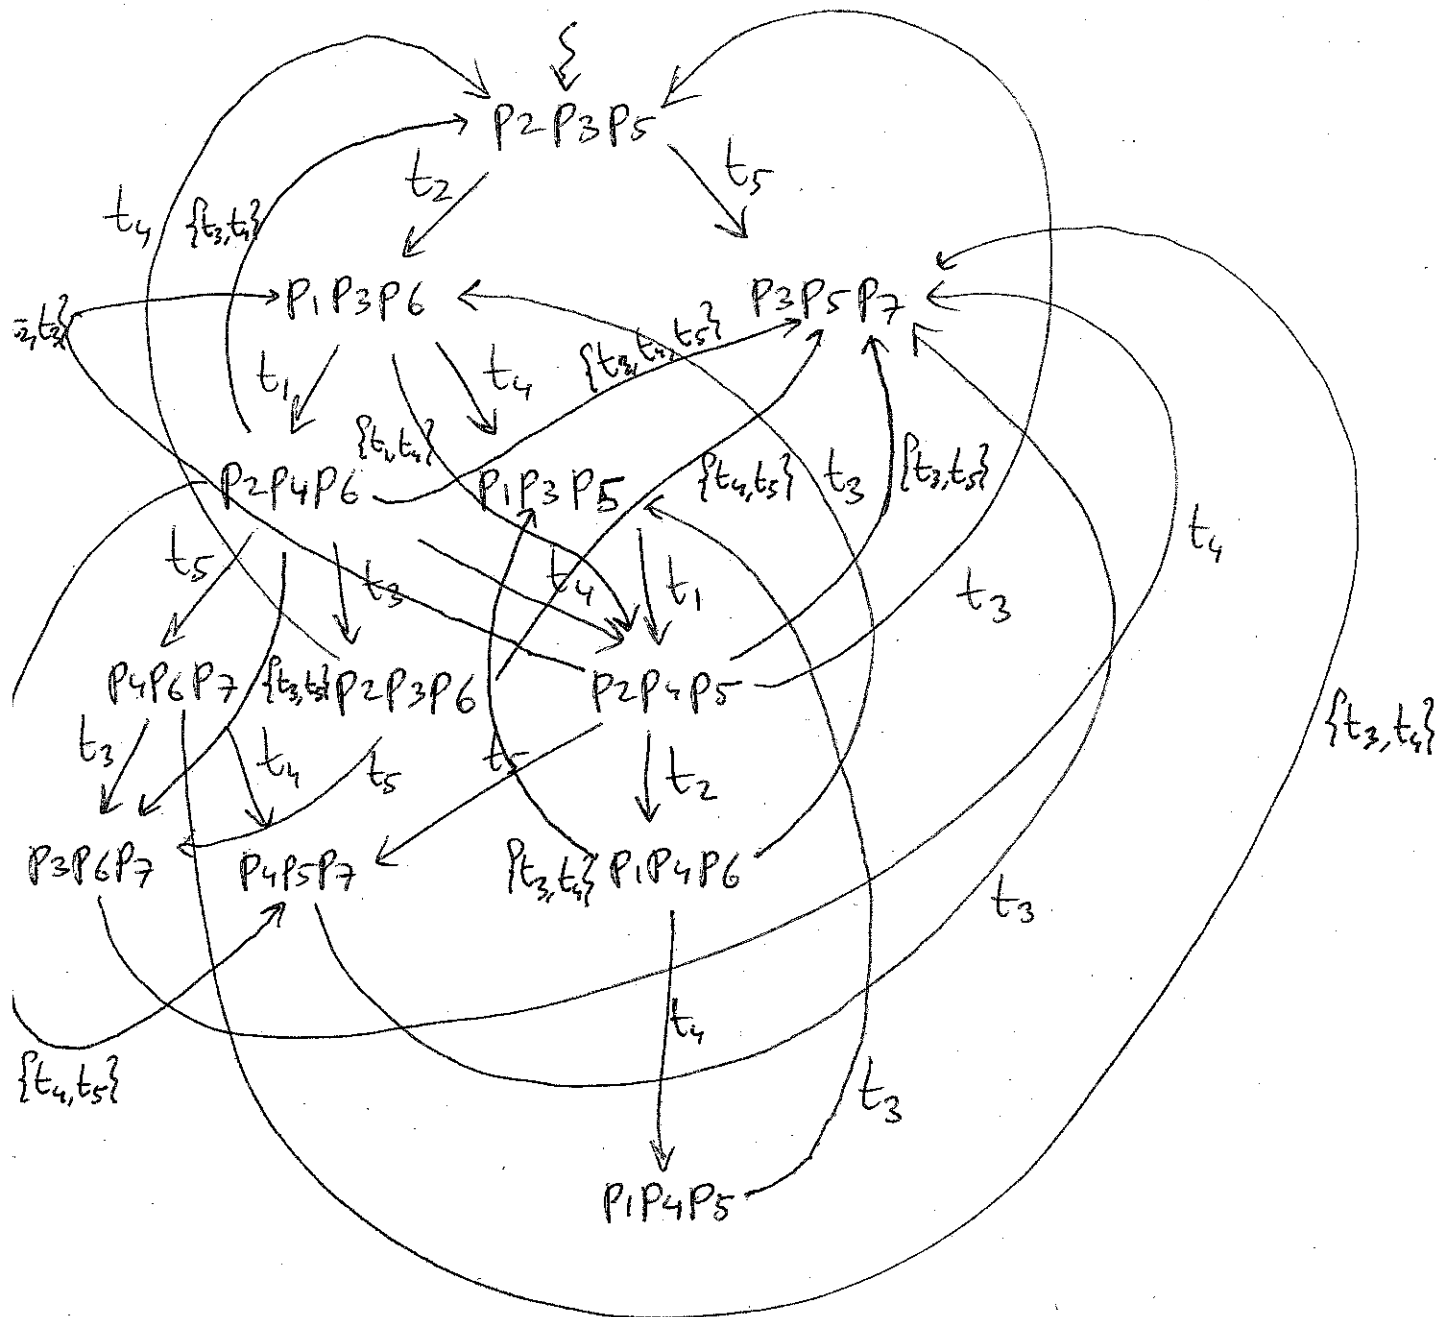 P2P3P5
t2
t5
t4
{t3,t4}
P1P3P6
P3P5P7
{t3,t4,t5}
t1
t4
{t1,t4}
P2P4P6
P1P3P5
{t4,t5}
t3
{t3,t5}
t4
t5
t3
t4
t1
t3
P4P6P7
{t3,t5}
P2P3P6
P2P4P5
t3
t4
t5
t5
t2
{t3,t4}
P3P6P7
P4P5P7
{t3,t4}
P1P4P6
t3
t4
{t4,t5}
t3
P1P4P5